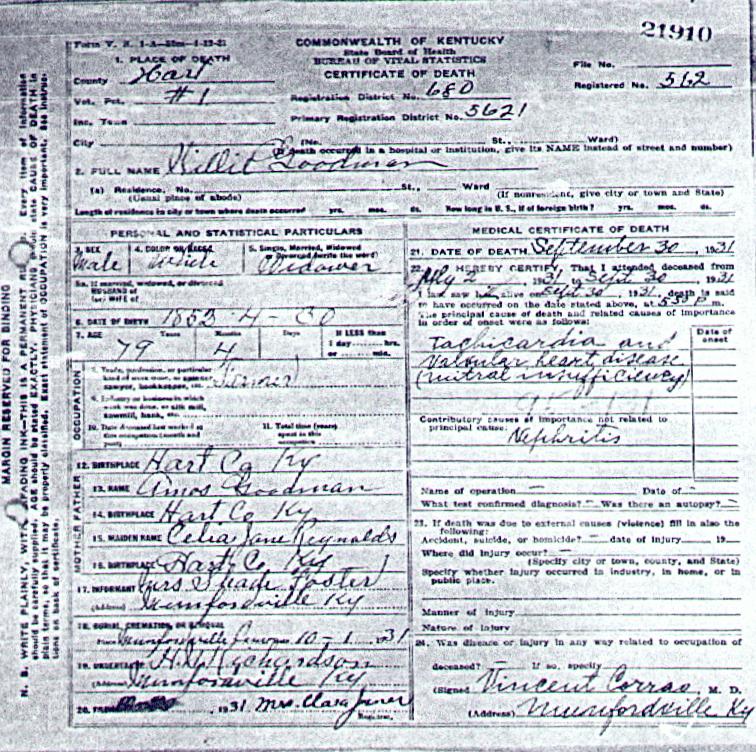 21910
Form V. S. 1-A
COMMONWEALTH OF KENTUCKY
State Board of Health
BUREAU OF VITAL STATISTICS
CERTIFICATE OF DEATH
File No.
Registered No. 562
1. PLACE OF DEATH
County Hart
Vot. Pct. #1
Registration District No. 680
Inc. Town
Primary Registration District No. 5621
City (No. St., Ward)
(If death occurred in a hospital or institution, give its NAME instead of street and number)
2. FULL NAME Goodman
(a) Residence, No. St., Ward
(Usual place of abode) (If nonresident, give city or town and State)
Length of residence in city or town where death occurred yrs. mos. ds. How long in U. S., if of foreign birth? yrs. mos. ds.
PERSONAL AND STATISTICAL PARTICULARS
3. SEX Male
4. COLOR OR RACE
5. Single, Married, Widowed or Divorced (write the word) Widower
5a. If married, widowed, or divorced
HUSBAND of
(or) WIFE of
6. DATE OF BIRTH 4
7. AGE 79 Years 4 Months Days
If LESS than
1 day, hrs.
or min.
OCCUPATION
8. Trade, profession, or particular
kind of work done, as spinner,
sawyer, bookkeeper, etc.
9. Industry or business in which
work was done, as silk mill,
sawmill, bank, etc.
10. Date deceased last worked at
this occupation (month and
year)
11. Total time (years)
spent in this
occupation
FATHER
MOTHER
12. BIRTHPLACE Hart Co Ky
13. NAME Amos Goodman
14. BIRTHPLACE Hart Co Ky
15. MAIDEN NAME Celia Jane Reynolds
16. BIRTHPLACE Hart Co Ky
17. INFORMANT Mrs Foster
(Address) Munfordville Ky
18. BURIAL, CREMATION, OR REMOVAL
Place Munfordville 10-1 31
19. UNDERTAKER Richardson
(Address) Munfordville Ky
20. FILED 1931 Mrs. Clara
Registrar.
MEDICAL CERTIFICATE OF DEATH
21. DATE OF DEATH September 30, 1931
22. I HEREBY CERTIFY, That I attended deceased from
1931 to Sept 30 1931
I last saw alive on Sept 30 1931, death is said
to have occurred on the date stated above, at m.
The principal cause of death and related causes of importance
in order of onset were as follows:
Date of onset
Tachicardia and
Valvular heart disease
(mitral insufficiency)
Contributory causes of importance not related to
principal cause:
Nephritis
Name of operation Date of
What test confirmed diagnosis? Was there an autopsy?
23. If death was due to external causes (violence) fill in also the
following:
Accident, suicide, or homicide? date of injury 19
Where did injury occur?
(Specify city or town, county, and State)
Specify whether injury occurred in industry, in home, or in
public place.
Manner of injury
Nature of injury
24. Was disease or injury in any way related to occupation of
deceased? If so, specify
(Signed) Vincent Corrao, M. D.
(Address) Munfordville Ky
MARGIN RESERVED FOR BINDING
N. B. WRITE PLAINLY, WITH UNFADING INK—THIS IS A PERMANENT RECORD. Every item of information
should be carefully supplied. AGE should be stated EXACTLY. PHYSICIANS should state CAUSE OF DEATH in
plain terms, so that it may be properly classified. Exact statement of OCCUPATION is very important. See instruc-
tions on back of certificate.